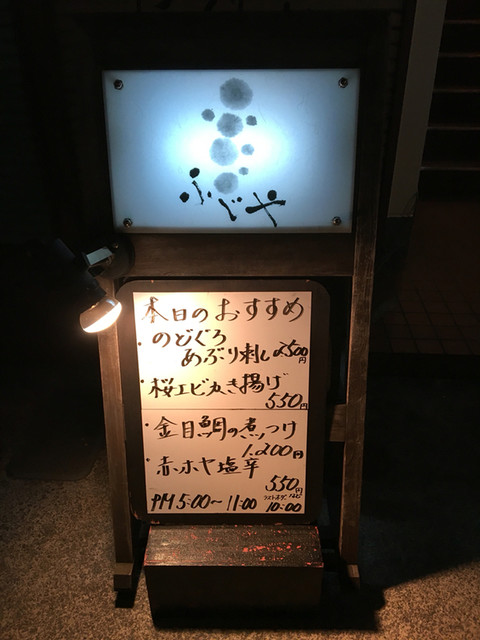 ふじや
本日のおすすめ
・のどぐろ
あぶり刺し 2500円
・桜エビかき揚げ
550円
・金目鯛の煮つけ
1.200円
・赤ホヤ塩辛
550円
PM 5:00〜11:00 10:00